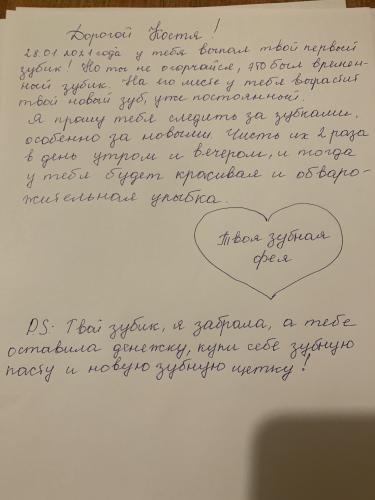 Дорогой Костя!
28.01.2021 года у тебя выпал твой первый
зубик! Но ты не огорчайся, это был времен-
ный зубик. На его месте у тебя вырастит
твой новый зуб, уже постоянный.
Я прошу тебя следить за зубками,
особенно за новыми. Чисть их 2 раза
в день утром и вечером, и тогда
у тебя будет красивая и обваро-
жительная улыбка.
Твоя зубная
фея
PS. Твой зубик, я забрала, а тебе
оставила денежку, купи себе зубную
пасту и новую зубную щетку!